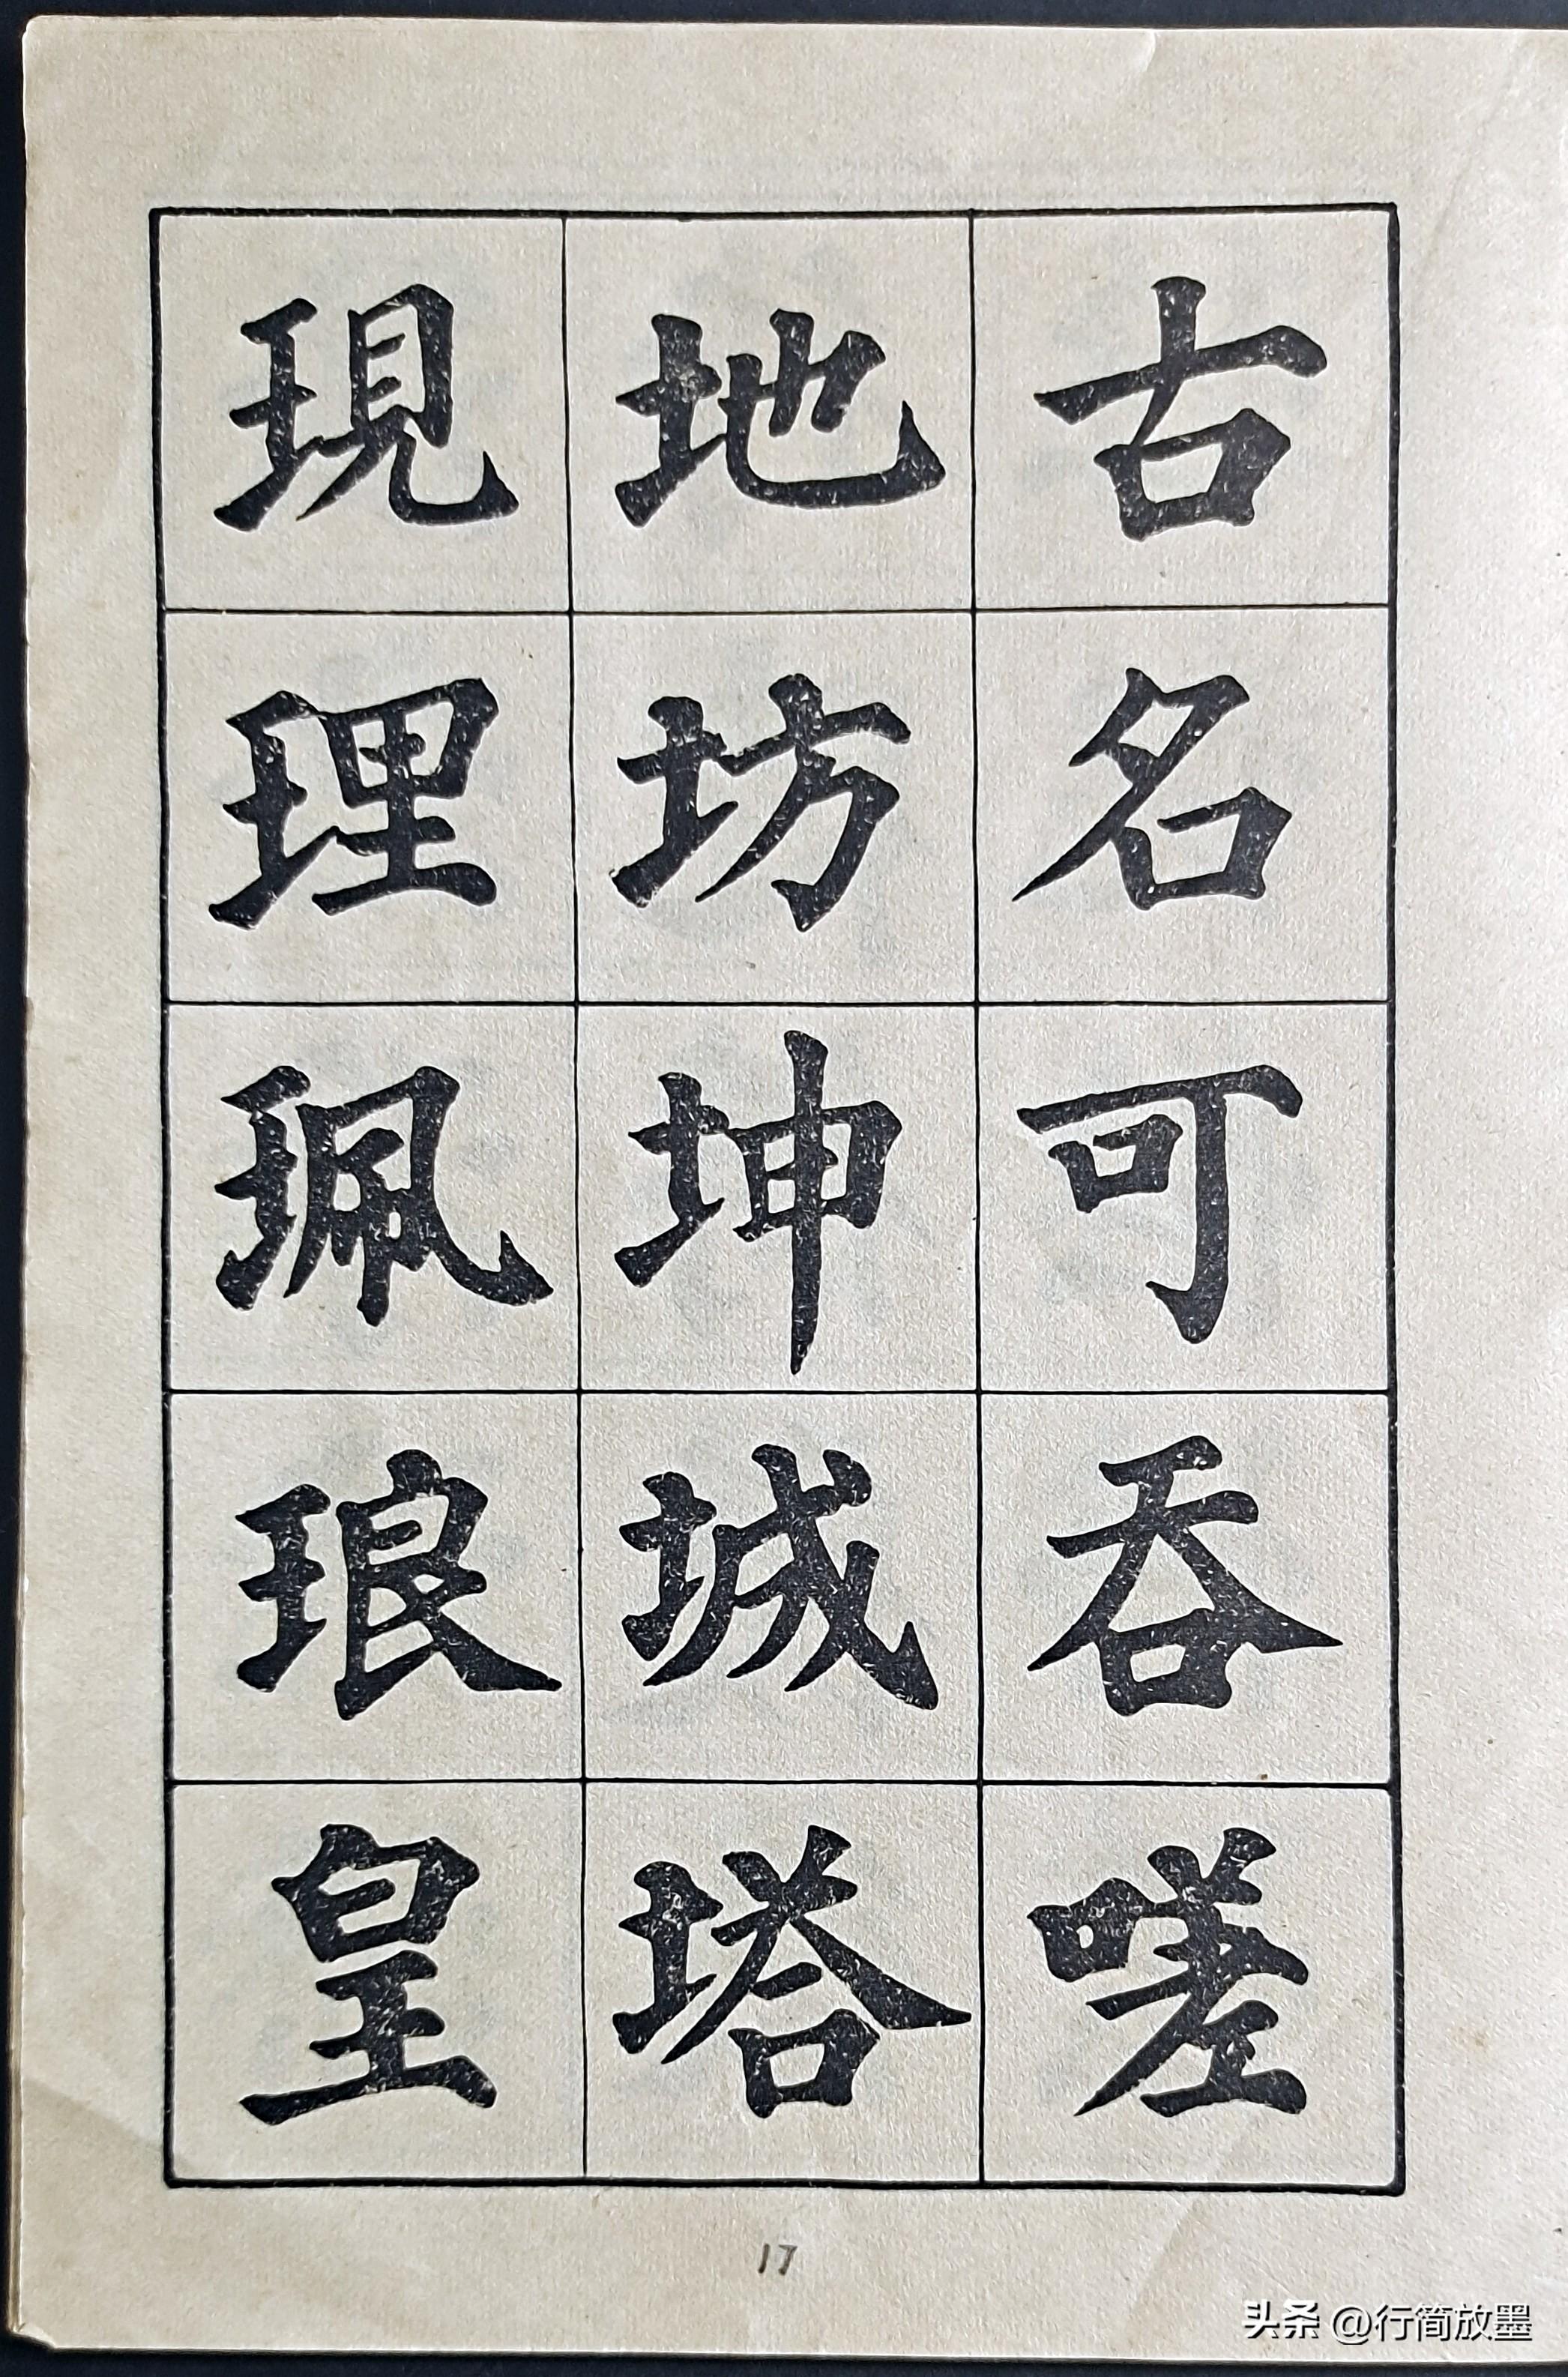 古名可吞嗟
地坊坤城塔
現理珮琅皇
17
头条 @行简放墨